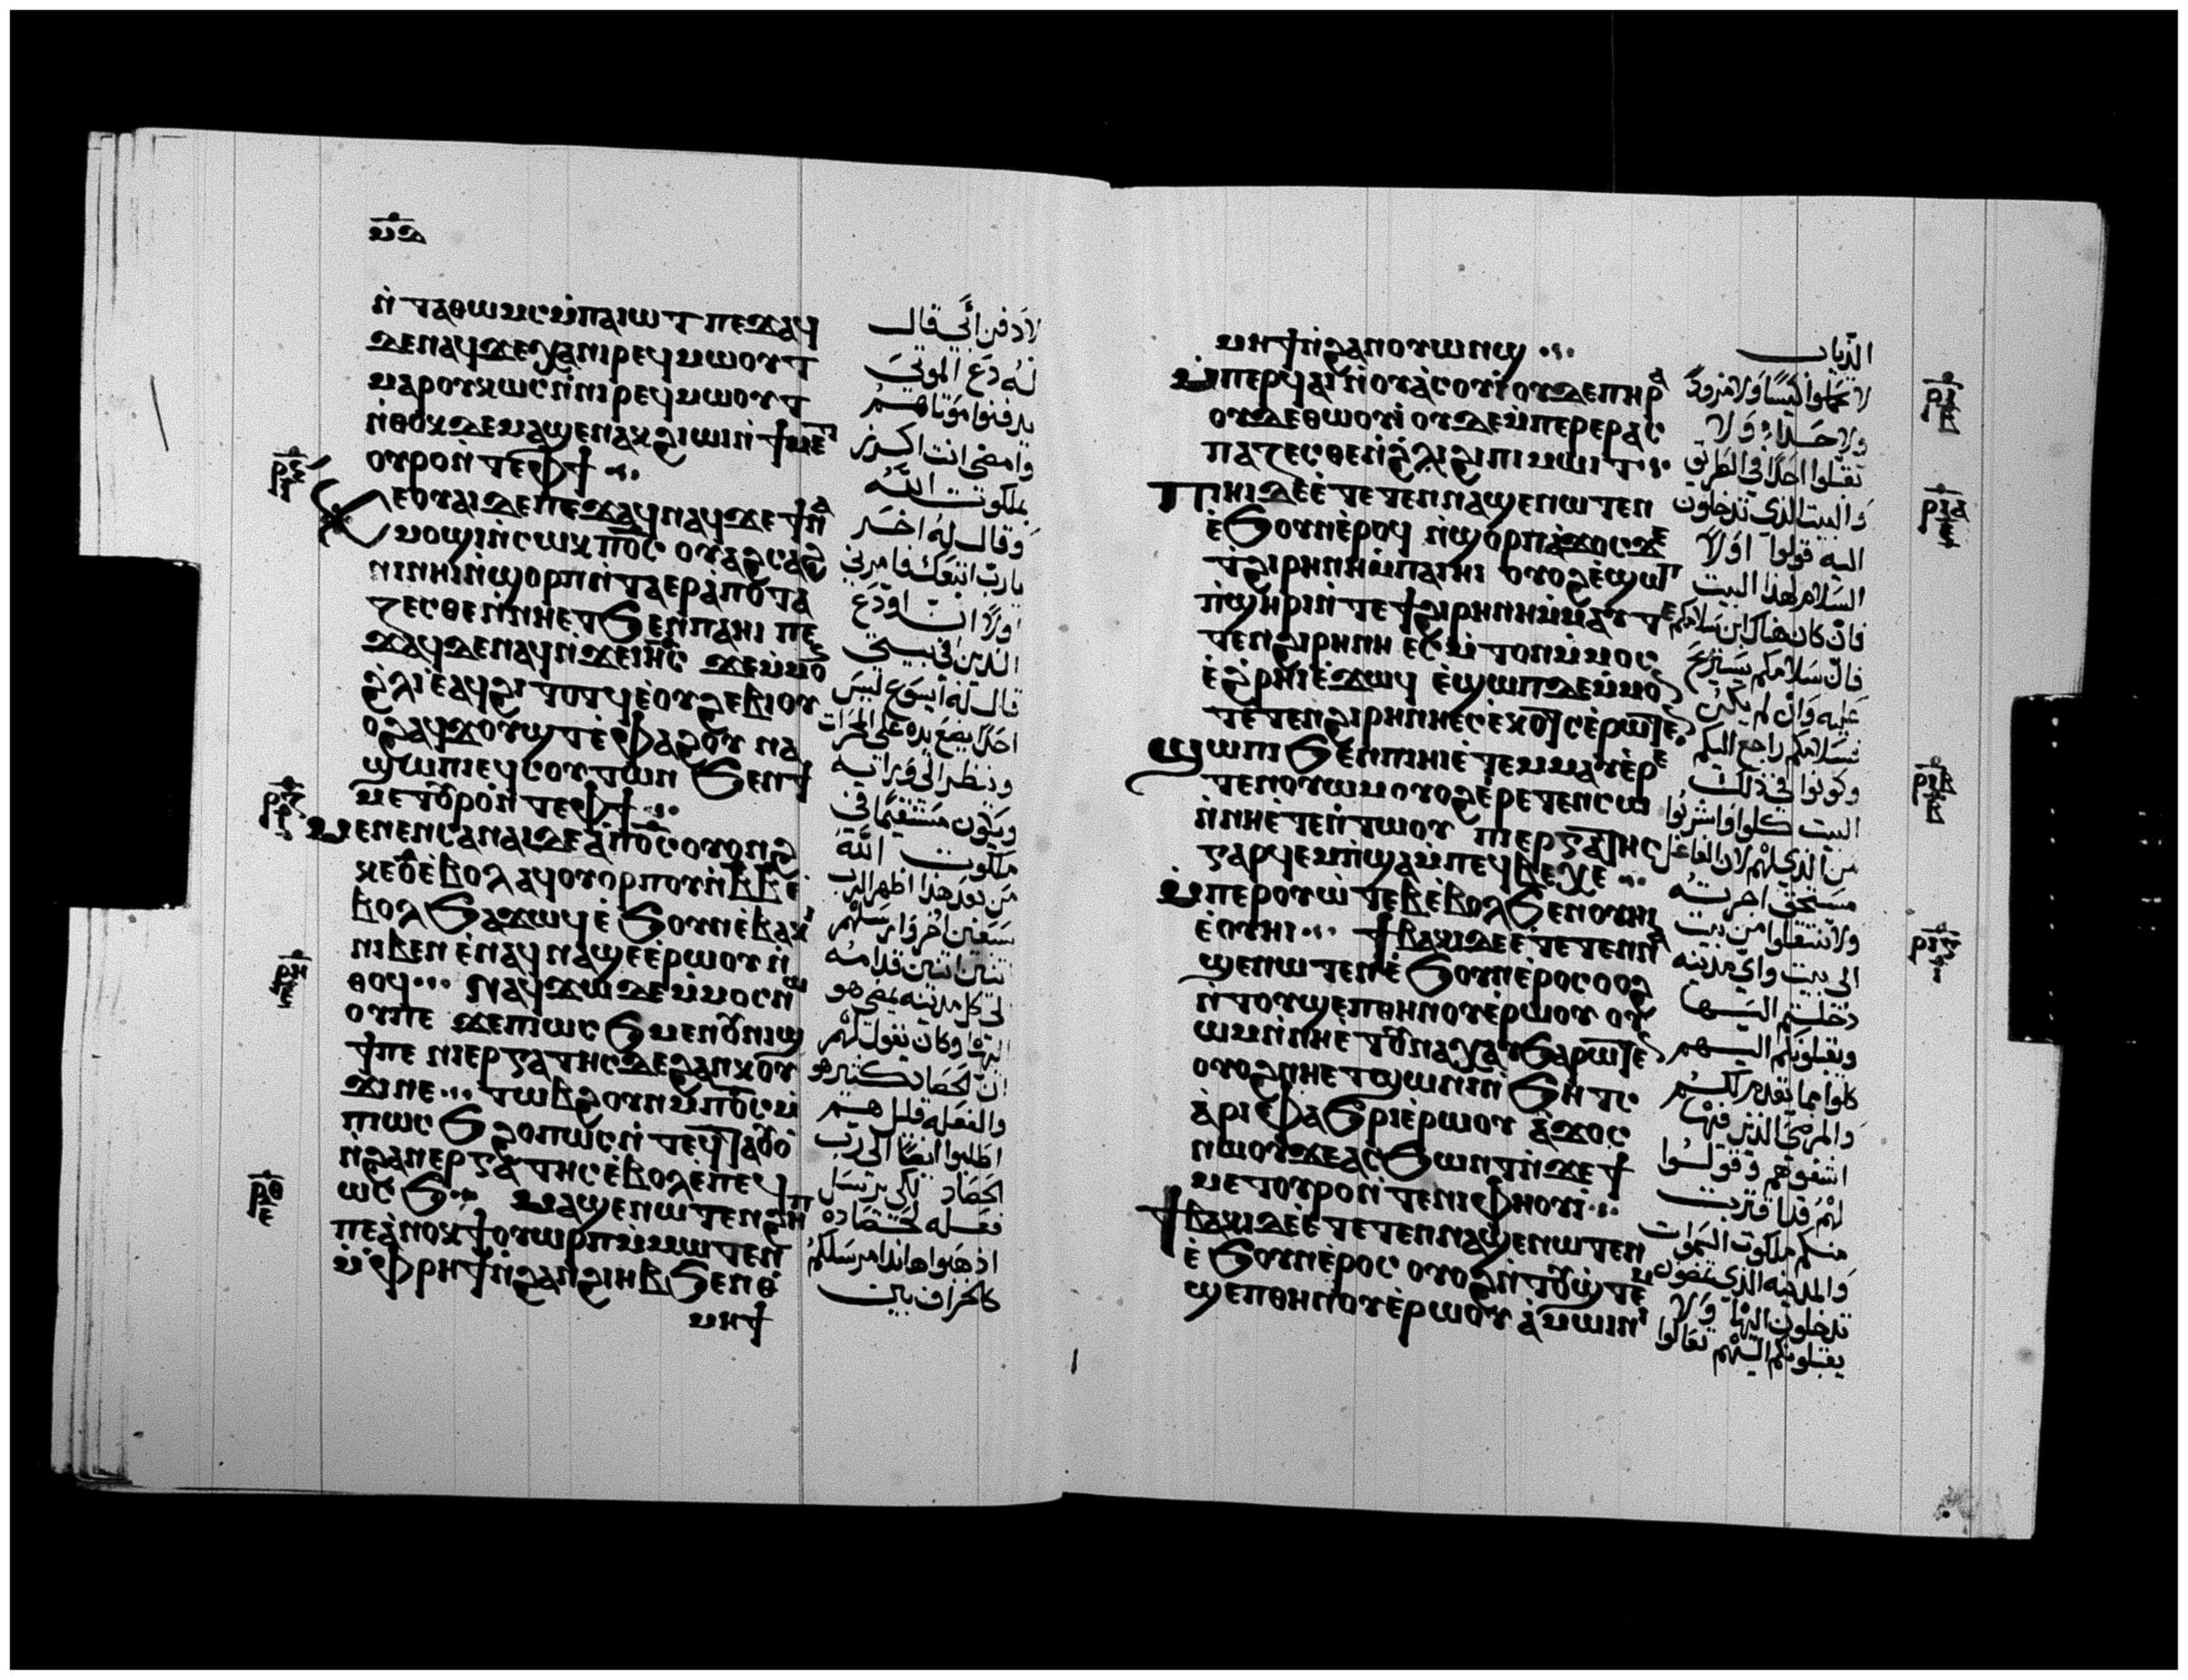 ⲛ̀ⲧⲁⲑⲱⲙⲥⲙ̀ⲡⲁⲓⲱⲧ ⲡⲉϫⲁϥ
ⲇⲉⲛⲁϥϫⲉⲭⲁⲛⲓⲣⲉϥⲙⲱⲟⲩⲧ
ⲙⲁⲣⲟⲩⲕⲱⲥⲛ̀ⲛⲓⲣⲉϥⲙⲱⲟⲩⲧ
ⲛ̀ⲑⲟⲕⲇⲉⲙⲁϣⲉⲛⲁⲕϩⲓⲱⲓⲛ̀ϯⲙⲉⲧ
ⲟⲩⲣⲟⲛ̀ⲧⲉⲫϯ
ⲕⲉⲟⲩⲁⲓⲇⲉⲡⲉϫⲁϥⲛⲁϥϫⲉϯⲛⲁ
ⲙⲟϣⲓⲛ̀ⲥⲱⲕ ⲡ⳪ ⲟⲩⲁϩⲥⲁϩ
ⲛⲓⲛⲏⲓⲛ̀ϣⲟⲣⲡⲛ̀ⲧⲁⲉⲣⲁ̀ⲡⲟⲧⲁ
ⲍⲉⲥⲑⲉⲛ̀ⲛⲏⲉⲧϧⲉⲛⲡⲁⲏⲓ ⲡⲉ
ϫⲁϥⲇⲉⲛⲁϥⲛ̀ϫⲉⲓⲏ̅ⲥ ϫⲉⲙ̀ⲙⲟⲛ
ϩ̀ⲗⲓⲉ̀ⲁϥϩⲓⲧⲟⲧϥⲉ̀ⲟⲩϩⲉⲃⲓⲟⲩ
ⲟϩⲁϥϫⲟⲩϣⲧⲉ̀ⲫⲁϩⲟⲩ ⲛⲁ
ϣⲱⲡⲓⲉϥⲥⲟⲩⲧⲱⲛ ϧⲉⲛϯ
ⲙⲉⲧⲟⲩⲣⲟⲛ̀ⲧⲉⲫϯ
ⲙⲉⲛⲉⲛⲥⲁⲛⲁⲓⲇⲉⲁ̀ⲡ⳪ⲟⲩⲟⲛϩ
ⲕⲉⲟ̅ⲉ̀ⲃⲟⲗ ⲁϥⲟⲩⲟⲣⲡⲟⲩⲛ̀ⲃ̅ⲃ̅ⲉ̀
ⲃⲟⲗ ϧⲁϫⲱϥⲉ̀ϧⲟⲩⲛⲉ̀ⲃⲁⲕⲓ
ⲛⲓⲃⲉⲛ ⲉ̀ⲛⲁϥⲛⲁϣⲉⲉ̀ⲣⲱⲟⲩⲛ̀
ⲑⲟϥ ⲛⲁϥϫⲱⲇⲉⲙ̀ⲙⲟⲥⲛⲱ
ⲟⲩⲡⲉ ϫⲉⲡⲓⲱⲥϧⲙⲉⲛⲟⲩⲛⲓϣ
ϯⲡⲉ ⲛⲓⲉⲣⲅⲁⲧⲏⲥⲇⲉϩⲁⲛⲕⲟⲩ
ϫⲓⲛⲉ ⲧⲱⲃϩⲟⲩⲛⲙ̀ⲡ⳪ⲙ̀
ⲡⲓⲱⲥϧϩⲟⲡⲱⲥⲛ̀ⲧⲉϥⲧⲁⲟⲩⲟ̀
ⲛ̀ϩⲁⲛⲉⲣⲅⲁⲧⲏⲥⲉ̀ⲃⲟⲗⲉ̀ⲡⲉϥ
ⲱⲥϧ ⲙⲁϣⲉⲛⲱⲧⲉⲛϩⲏⲡ
ⲡⲉⲁ̀ⲛⲟⲕϯⲟⲩⲱⲣⲡⲙ̀ⲙⲱⲧⲉⲛ
ⲙ̀ⲫⲣⲏϯⲛ̀ϩⲁⲛϩⲓⲏⲃϧⲉⲛⲑ
ⲙⲏϯ
لادفن ابي قال
له دع الموتى
يدفنوا موتاهم
وامضى انت اكرز
بملكوت الله
وقال له اخر
يارب اتبعك فامرني
اولا ان اودع
الذين في بيتي
قال له ايسوع ليس
احدا يضع يده على المحراث
وينظر الى ورائيه
ويكون مستقيما في
ملكوت الله
من بعد هذا اظهر الرب
سبعين اخر وارسلهم
اثنين اثنين قدامه
الى كل مدينه يمضى هو
اليها وكان يقول لهم
ان الحصاد كثير هو
والفعله قليل هم
اطلبوا ايضا الى رب
الحصاد لكى يرسل
فعله لحصاده
اذهبوا هانذا مرسلكم
كالخراف بين
ⲙⲏϯⲛ̀ϩⲁⲛⲟⲩⲱⲛϣ
ⲙ̀ⲡⲉⲣϥⲁⲓⲛ̀ⲟⲩⲁ̀ⲥⲟⲩⲓ̀ⲟⲩⲇⲉⲡⲏⲣⲁ
ⲟⲩⲇⲉⲑⲱⲟⲩⲓ̀ ⲟⲩⲇⲉⲙ̀ⲡⲉⲣⲉⲣⲁⲥ
ⲡⲁⲍⲉⲥⲑⲉⲛ̀ϩ̀ⲗⲓϩⲓⲡⲓⲙⲱⲓⲧ
ⲡⲓⲏⲓⲇⲉⲉ̀ⲧⲉⲧⲉⲛⲛⲁϣⲉⲛⲱⲧⲉⲛ
ⲉ̀ϧⲟⲩⲛⲉ̀ⲣⲟϥ ⲛ̀ϣⲟⲣⲡⲁ̀ϫⲟⲥϫⲉ
ϯϩⲓⲣⲏⲛⲏⲙ̀ⲡⲁⲓⲏⲓ ⲟⲩⲟϩⲉ̀ϣⲱⲡ
ⲡ̀ϣⲏⲣⲓⲛ̀ⲧⲉϯϩⲓⲣⲏⲛⲏⲙ̀ⲙⲁⲩⲧⲉ
ⲧⲉⲛϩⲓⲣⲏⲛⲏ ⲉⲥⲙ̀ⲧⲟⲛⲙ̀ⲙⲟⲥ
ⲉ̀ϩ̀ⲣⲏⲓⲉ̀ϫⲱϥ ⲉ̀ϣⲱⲡⲇⲉⲙ̀ⲙⲟⲛ
ⲧⲉⲧⲉⲛϩⲓⲣⲏⲛⲏⲉⲥⲉ̀ⲕⲟⲧⲥⲉ̀ⲣⲱⲧⲉⲛ
ϣⲱⲡⲓ ϧⲉⲛⲡⲓⲏⲓⲉ̀ⲧⲉⲙⲙⲁⲩⲉ̀ⲣⲉ
ⲧⲉⲛⲟⲩⲱⲙⲟⲩⲟϩⲉ̀ⲣⲉⲧⲉⲛⲥⲱ
ⲛ̀ⲛⲏⲉ̀ⲧⲉⲛ̀ⲧⲱⲟⲩ ⲡⲓⲉⲣⲅⲁⲧⲏⲥ
ⲅⲁⲣϥⲉⲙⲡ̀ϣⲁⲙ̀ⲡⲉϥⲃⲉⲭⲉ
ⲙ̀ⲡⲉⲣⲟⲩⲱ̀ⲧⲉⲃⲉ̀ⲃⲟⲗϧⲉⲛⲟⲩⲏⲓ
ⲉ̀ⲟⲩⲏⲓ ϯⲃⲁⲕⲓⲇⲉⲉ̀ⲧⲉⲧⲉⲛⲛⲁ
ϣⲉⲛⲱⲧⲉⲛⲉ̀ϧⲟⲩⲛⲉ̀ⲣⲟⲥⲟⲟϩ
ⲛ̀ⲧⲟⲩϣⲉⲡⲑⲏⲛⲟⲩⲉ̀ⲣⲱⲟⲩ ⲟⲩ
ⲱⲙⲛ̀ⲛⲏⲉⲧⲟⲩⲛⲁⲭⲁⲩϧⲁⲣⲱⲧⲉⲛ
ⲟⲩⲟϩⲛⲏⲉⲧϣⲱⲛⲓⲛ̀ϧⲏⲧⲥ
ⲁ̀ⲣⲓⲫⲁϧⲣⲓⲉ̀ⲣⲱⲟⲩ ⲁ̀ϫⲟⲥ
ⲛⲱⲟⲩϫⲉⲁⲥϧⲱⲛⲧⲛ̀ϫⲉϯ
ⲙⲉⲧⲟⲩⲣⲟⲛ̀ⲧⲉⲛⲓⲫⲏⲟⲩⲓ̀
ϯⲃⲁⲕⲓⲇⲉⲉ̀ⲧⲉⲧⲉⲛⲛⲁϣⲉⲛⲱⲧⲉⲛ
ⲉ̀ϧⲟⲩⲛⲉ̀ⲣⲟⲥ ⲟⲩⲟϩⲛ̀ⲧⲟⲩϣ̀ⲧⲉⲙ
ϣⲉⲡⲑⲏⲛⲟⲩⲉ̀ⲣⲱⲟⲩ ⲁ̀ⲙⲱⲓⲛⲓ
الذياب
لا تحملوا كيسا ولا مزودا
ولا حذاء ولا
تقبلوا احدا في الطريق
والبيت الذي تدخلون
اليه قولوا اولا
السلام لهذا البيت
فان كان هناك ابن سلامكم
فان سلامكم يستريح
عليه وان لم يكن
فسلامكم راجع اليكم
وكونوا في ذلك
البيت كلوا واشربوا
من الذي لهم لان الفاعل
مستحق اجرته
ولا تنتقلوا من بيت
الى بيت واي مدينه
دخلتم اليها
ويقبلونكم اليهم
كلوا مما يقدم لكم
والمرضى الذين فيها
اشفوهم وقولوا
لهم قد اقتربت
منكم ملكوت السموات
والمدينه الذي تمضون
تدخلون اليها ولا
يقبلونكم اليهم تعالوا